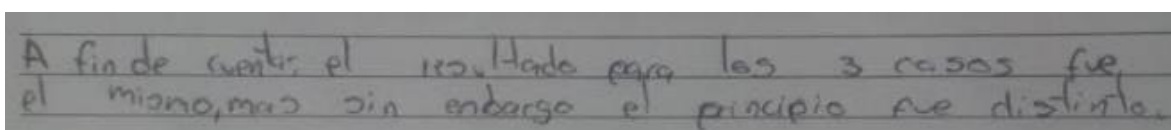 A fin de cuentas el resultado para los 3 casos fue
el mismo, mas sin enbargo el principio fue distinto.